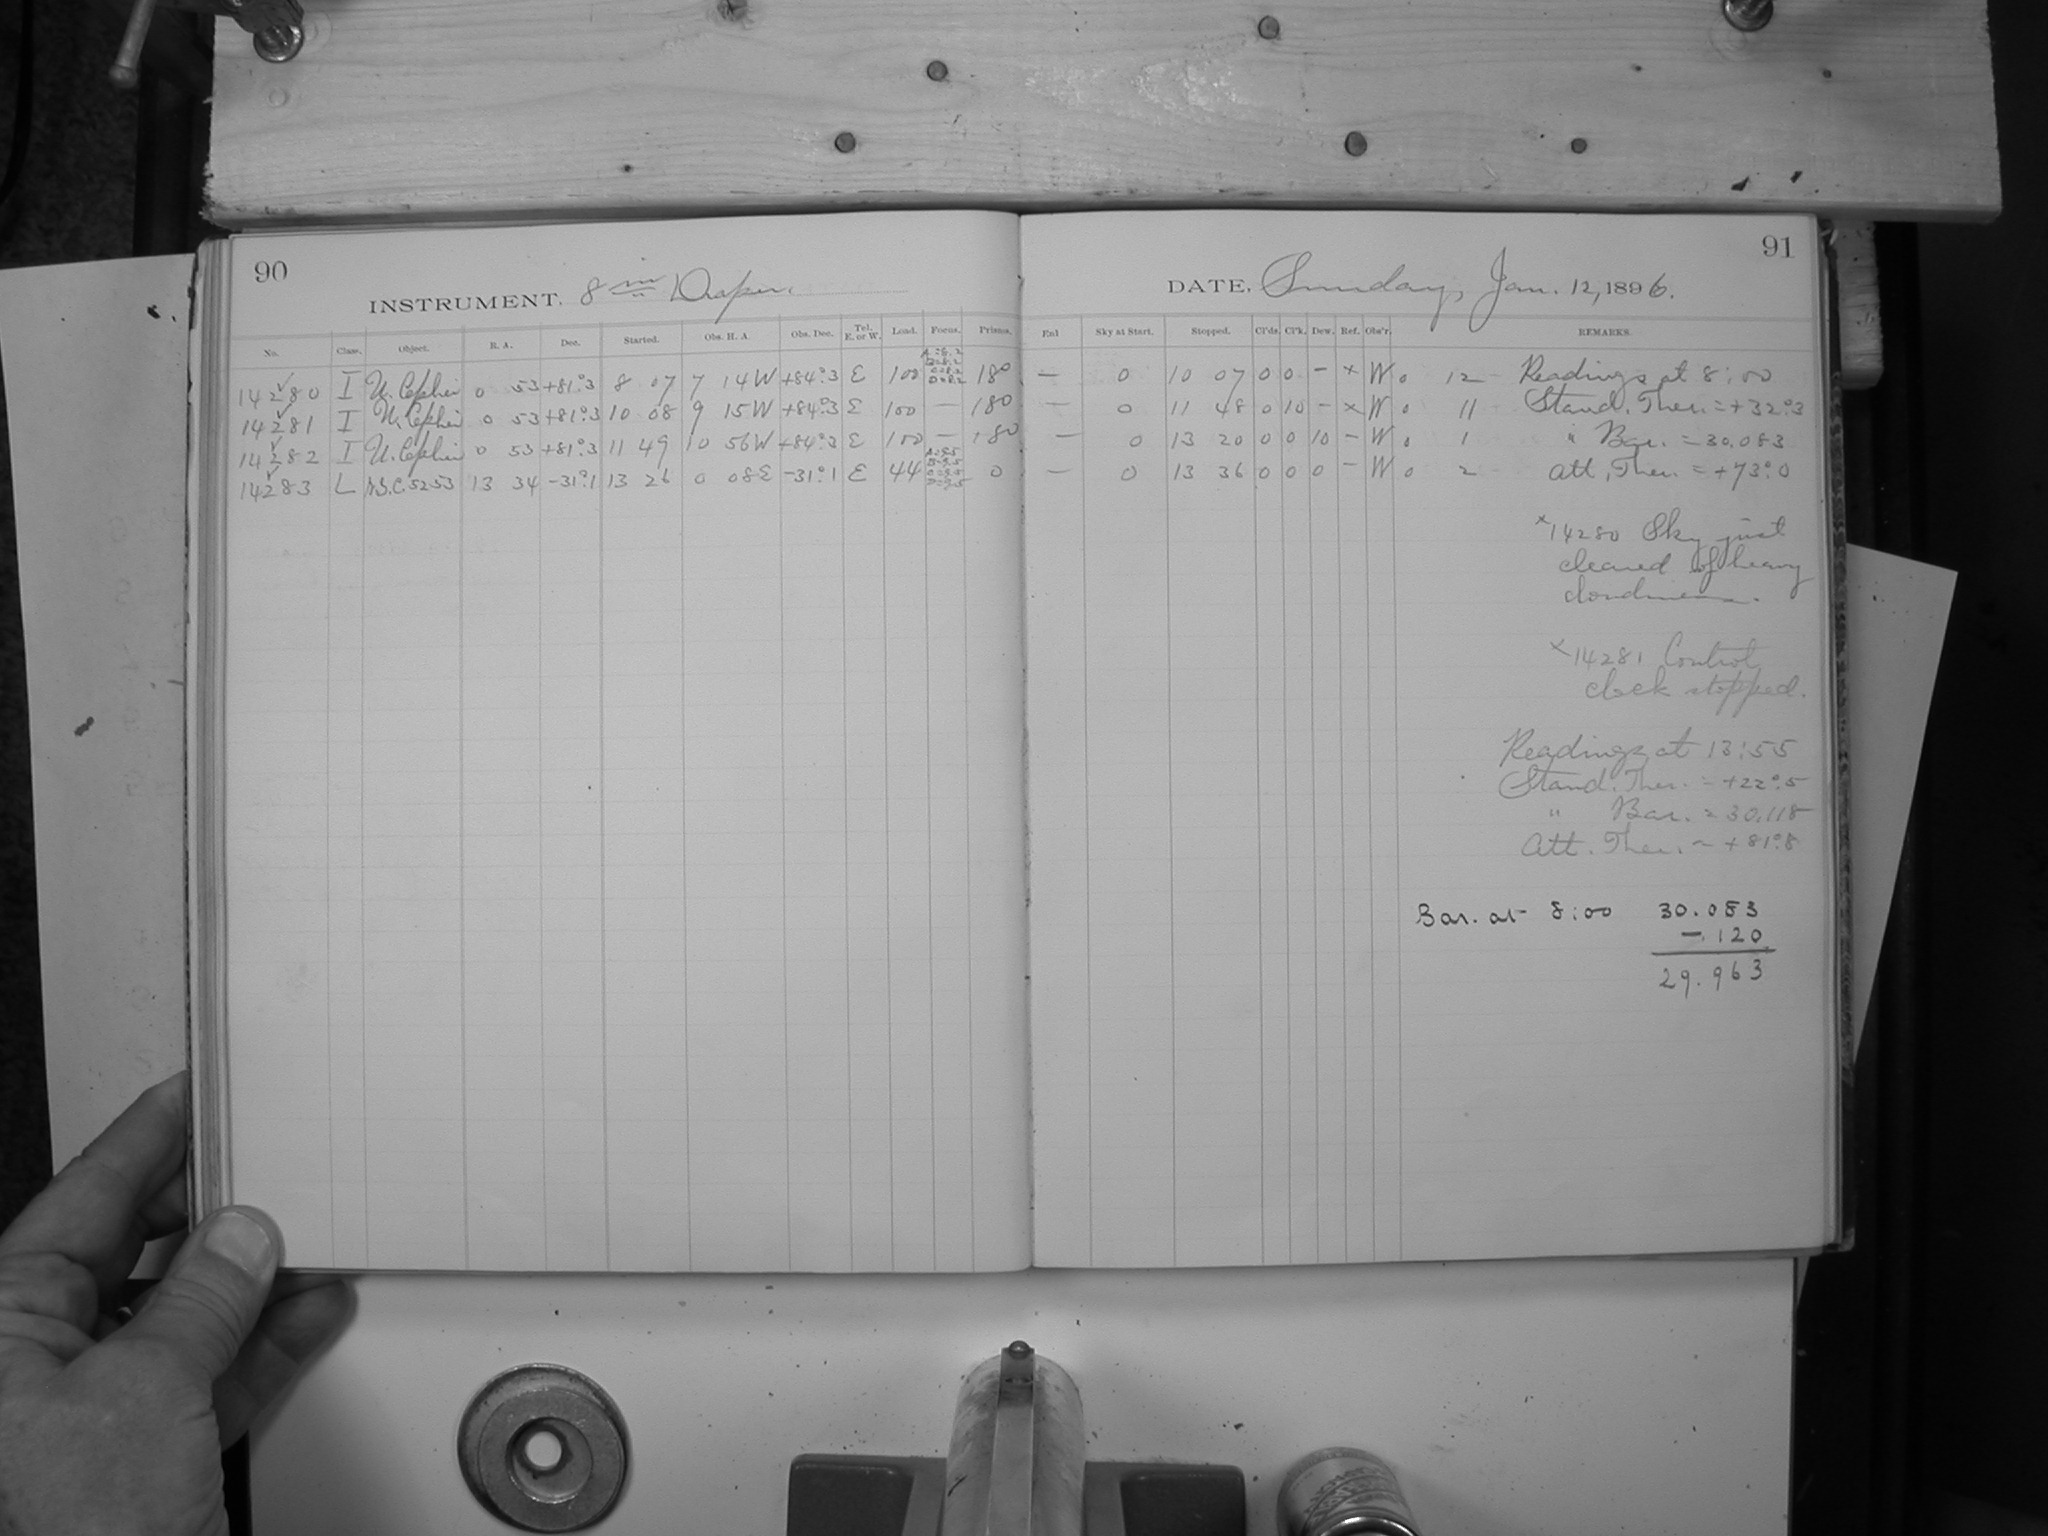 90
INSTRUMENT. 8 in Draper.
No. Class. Object. R. A. Dec. Started. Obs. H. A. Obs. Dec. Tel. E. or W. Load. Focus. Prisms.
14280 I U. Cephei 0 53 +81°.3 8 07 7 14W +84°.3 E 100 180
14281 I U. Cephei 0 53 +81°.3 10 08 9 15W +84°.3 E 100 — 180
14282 I U. Cephei 0 53 +81°.3 11 49 10 56W +84°.3 E 100 — 180
14283 L N.G.C. 5253 13 34 -31°.1 13 26 0 08E -31°.1 E 44 0
91
DATE, Sunday, Jan. 12, 1896.
Enl Sky at Start. Stopped. Cl'ds. Cl'k. Dew. Ref. Obs'r. REMARKS.
— 0 10 07 0 0 - x W 0 12 Readings at 8:00
— 0 11 48 0 10 - x W 0 11 Stand. Ther. = +32°.3
— 0 13 20 0 0 10 - W 0 1 " Bar. = 30.083
— 0 13 36 0 0 0 - W 0 2 Att. Ther. = +73°.0
x14280 Sky just
cleared of heavy
cloudiness.
x14281 Control
clock stopped.
Readings at 13:55
Stand. Ther. = +22°.5
" Bar. = 30.118
Att. Ther. = +81°.8
Bar. at 8:00 30.083
-.120
29.963